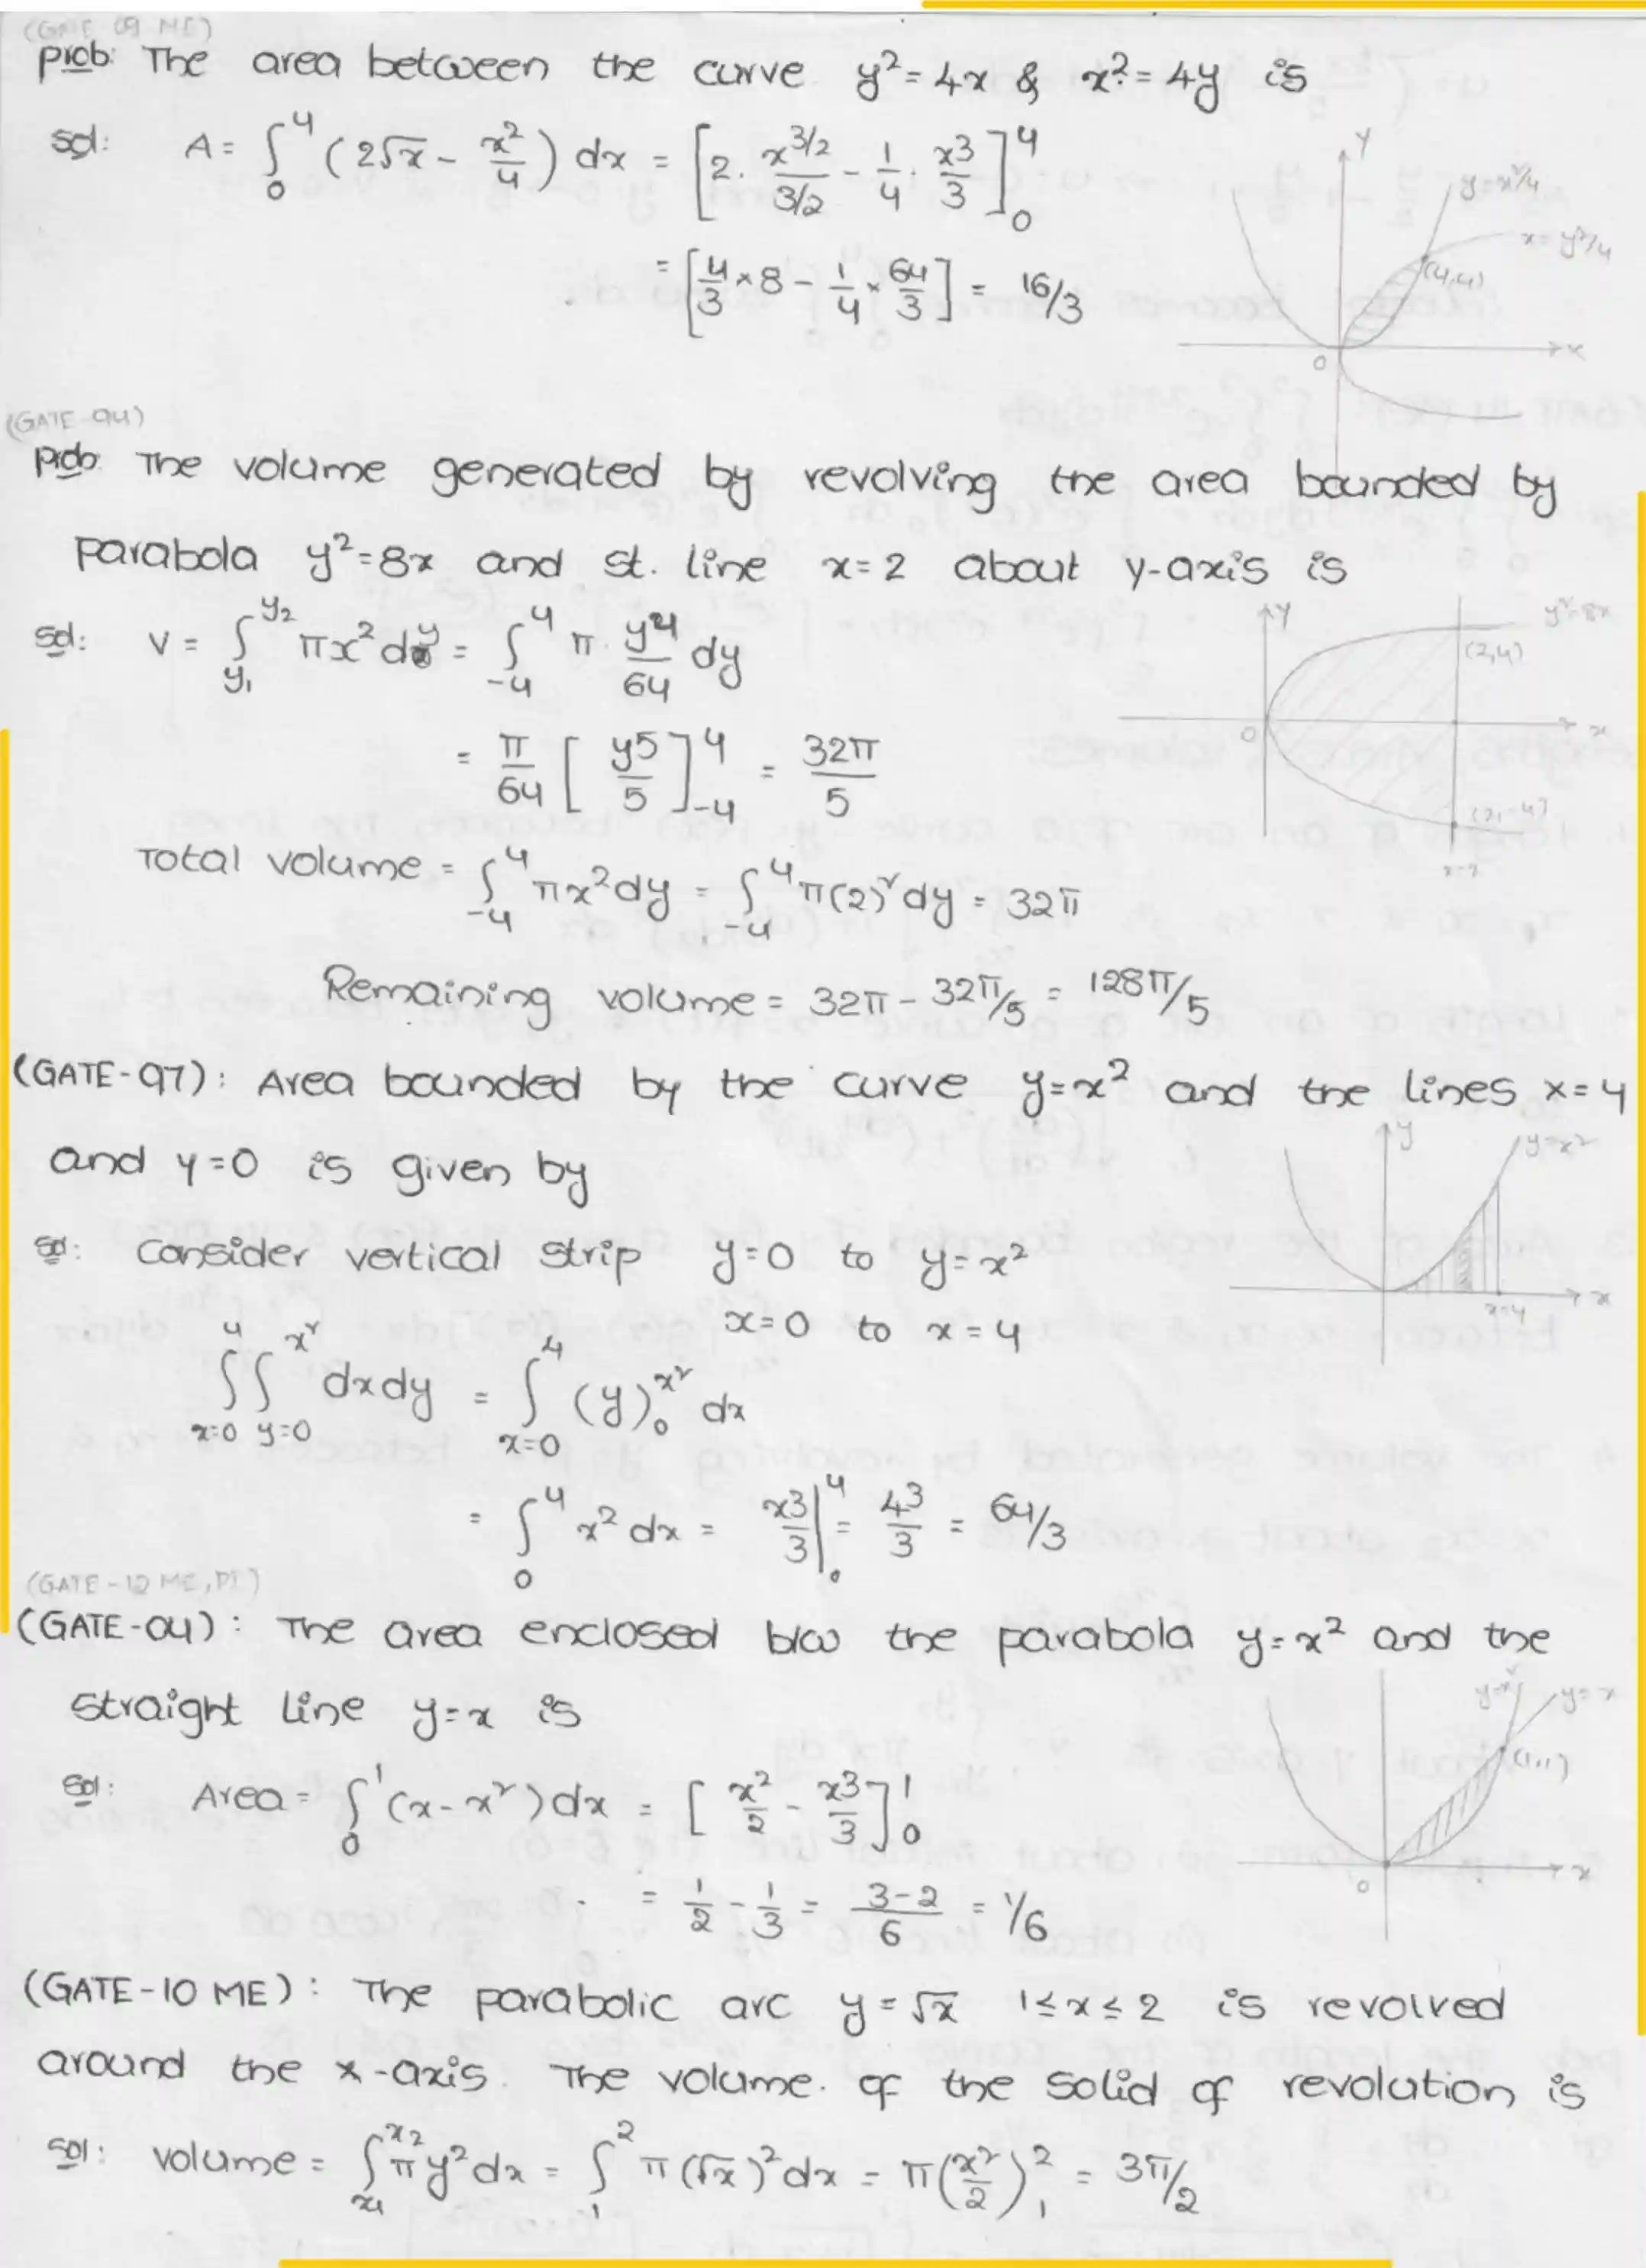 (GATE 09 ME)
Prob: The area between the curve y² = 4x & x² = 4y is
Sol: A = ∫₀⁴ (2√x - x²/4) dx = [2. x^(3/2)/(3/2) - 1/4 . x³/3]₀⁴
= [4/3 × 8 - 1/4 × 64/3] = 16/3
Y
y = x²/4
x = y²/4
(4,4)
O
x
(GATE-94)
Prob: The volume generated by revolving the area bounded by
Parabola y² = 8x and st. line x = 2 about y-axis is
Sol: V = ∫_{y₁}^{y₂} πx² dy = ∫₋₄⁴ π. y⁴/64 dy
= π/64 [y⁵/5]₋₄⁴ = 32π/5
Y
y² = 8x
(2,4)
O
x
(2,-4)
x=2
Total volume = ∫₋₄⁴ πx²dy = ∫₋₄⁴ π(2)² dy = 32π
Remaining volume = 32π - 32π/5 = 128π/5
(GATE-97): Area bounded by the curve y = x² and the lines x = 4
and y = 0 is given by
y
y=x²
x=4
x
Sol: Consider vertical strip y = 0 to y = x²
x = 0 to x = 4
∫_{x=0}^{4} ∫_{y=0}^{x²} dxdy = ∫_{x=0}^{4} (y)₀^{x²} dx
= ∫₀⁴ x² dx = x³/3 |₀⁴ = 4³/3 = 64/3
(GATE-12 ME, PI)
(GATE-04): The area enclosed b/w the parabola y = x² and the
straight line y = x is
y=x²
y=x
(1,1)
O
x
Sol: Area = ∫₀¹ (x - x²) dx = [x²/2 - x³/3]₀¹
= 1/2 - 1/3 = (3-2)/6 = 1/6
(GATE-10 ME): The parabolic arc y = √x 1 ≤ x ≤ 2 is revolved
around the x-axis. The volume. of the solid of revolution is
Sol: volume = ∫_{x₁}^{x₂} πy² dx = ∫₁² π(√x)² dx = π(x²/2)₁² = 3π/2